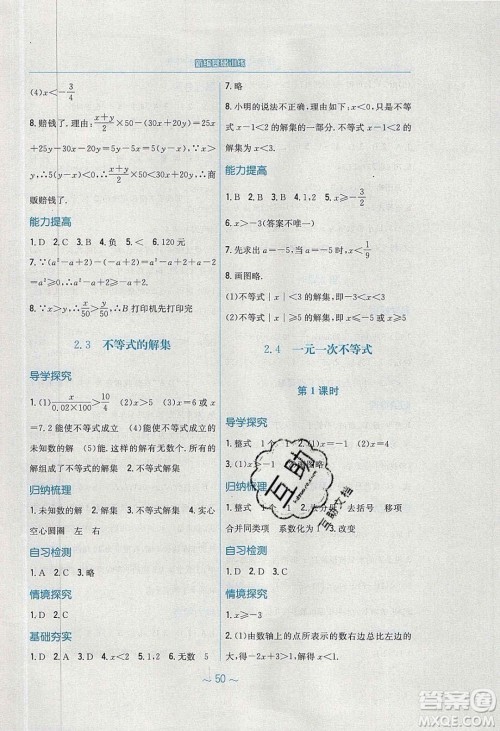 新编基础训练
(4)x<-3/4
8. 赔钱了. 理由:(x+y)/2×50-(30x+20y)=25x
+25y-30x-20y=5y-5x=5(y-x). ∵x>
y, ∴y-x<0, ∴(x+y)/2×50<30x+20y, ∴商
版赔钱了.
能力提高
1. D 2. C 3. B 4. 负 5.< 6. 120元
7. ∵(a²-a+2)-(-a²-a+2)=a²-a+2+a²+
a-2=2a²≥0, ∴a²-a+2≥-a²-a+2
8. ∵x>y, ∴x/50>y/50, ∴B打印机先打印完
2.3 不等式的解集
导学探究
1. (1)x/(0.02×100)>10/4 (2)x>5 (3)x=6或x
=7.2能使不等式成立 (4)能使不等式成立的
未知数的值 (5)能. 这样的解有无数个. (6)所
有能使不等式成立的x的集合
2. 不等式的解集 3. 不等式的解集
归纳梳理
1. 未知数的解 2. 所有解 3. 解集 4. 实心圆点
空心圆圈 左 右
自习检测
1. A 2. C 3. 略
情境探究
1. D 2. C
基础夯实
1. D 2. A 3. B 4. x<2 5. A 6. 无数 5
7. 略
8. 小明的说法不正确, 理由:x<1只是不等式
x-1<2的解集的一部分. 不等式x-1<2的解集
为x<3.
能力提高
1. B 2. B 3. D 4. 1,2 5. x≥-3/2
6. x>-3(答案不唯一)
7. 先求出a=-5, 当a=-5时, x<1/9
8. 画图略.
(1)不等式|x|<3的解集是-3<x<3.
(2)不等式|x|≥5的解集是x≥5或x≤-5
2.4 一元一次不等式
第1课时
导学探究
1. 整式 1个 1 2. (1)x>4 (2)x=4
3. (1)x≥-1 (2)图略
归纳梳理
1. 整式 1个 1 2. 去分母 去括号 移项
合并同类项 系数化为1 3. 改变
自习检测
1. D 2. D 3. D 4. x<2
情境探究
1. x≥-3
2. (1)由数轴上的点所表示的数右边总是比左边的
大, 得-2x+3>1, 解得x<1.
～50～
互助
互助文档
答案圈
MXQE.COM